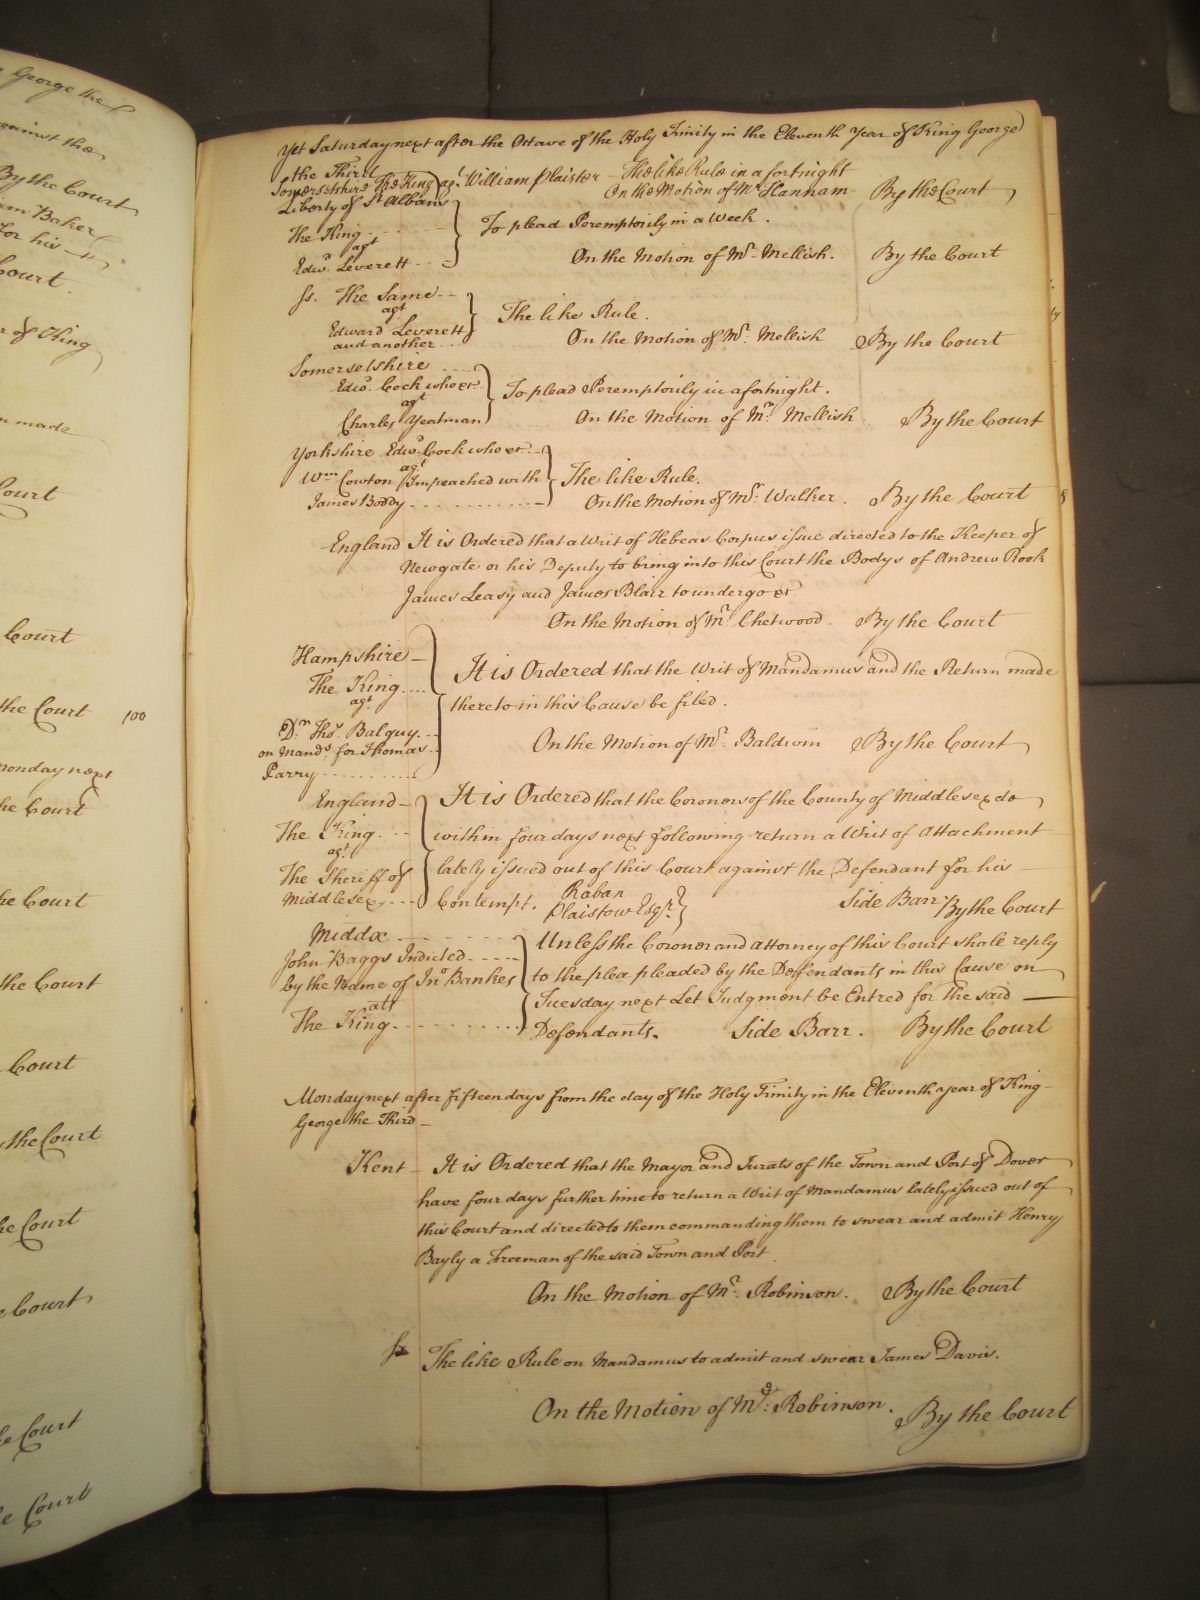 George the
against the
By the Court
iam Baker
for his
Court.
r of King
made
Court
Court
the Court 100
monday next
he Court
he Court
the Court
Court
the Court
he Court
e Court
e Court
e Court
Yet Saturday next after the Octave of the Holy Trinity in the Eleventh Year of King George
the Third
Somersetshire The King agt William Plaister - The like Rule in a fortnight
On the Motion of Mr Hannam By the Court
Liberty of St Albans
The King
agt
Edwd. Leverett
To plead Peremptorily in a Week.
On the Motion of Mr. Mellish. By the Court
ss. The Same
agt
Edward Leverett
and another
The like Rule.
On the Motion of Mr. Mellish By the Court
Somersetshire
Edwd. Cock who &c
agt
Charles Yeatman
To plead Peremptorily in a fortnight.
On the Motion of Mr. Mellish By the Court
Yorkshire Edwd. Cock who &c
agt
Wm Cowton Impeached with
James Boddy
The like Rule.
On the Motion of Mr. Walker. By the Court
England It is Ordered that a Writ of Hebeas Corpus issue directed to the Keeper of
Newgate or his Deputy to bring into this Court the Bodys of Andrew Rook
James Leasy and James Blair to undergo &c
On the Motion of Mr. Chetwood. By the Court
Hampshire
The King
agt
Dr. Thos. Balguy
on Mands. for Thomas
Parry
It is Ordered that the Writ of Mandamus and the Return made
thereto in this Cause be filed.
On the Motion of Mr. Baldwin By the Court
England
The King
agt
The Sheriff of
Middlesex
It is Ordered that the Coroners of the County of Middlesex do
within four days next following return a Writ of Attachment
lately issued out of this Court against the Defendant for his
Contempt. Raban
Plaistow Esqr. Side Barr By the Court
Middx
John Baggs Indicted
by the Name of Jno Bankes
ats
The King
Unless the Coroner and Attorney of this Court shall reply
to the plea pleaded by the Deffendants in this Cause on
Tuesday next Let Judgment be Entred for the said
Defendants. Side Barr. By the Court
Monday next after fifteen days from the day of the Holy Trinity in the Eleventh year of King
George the Third
Kent It is Ordered that the Mayor and Jurats of the Town and Port of Dover
have four days further time to return a Writ of Mandamus lately issued out of
this Court and directed to them commanding them to swear and admit Henry
Bayly a Freeman of the said Town and Port.
On the Motion of Mr. Robinson. By the Court
ss The like Rule on Mandamus to admit and swear James Davis.
On the Motion of Mr. Robinson. By the Court